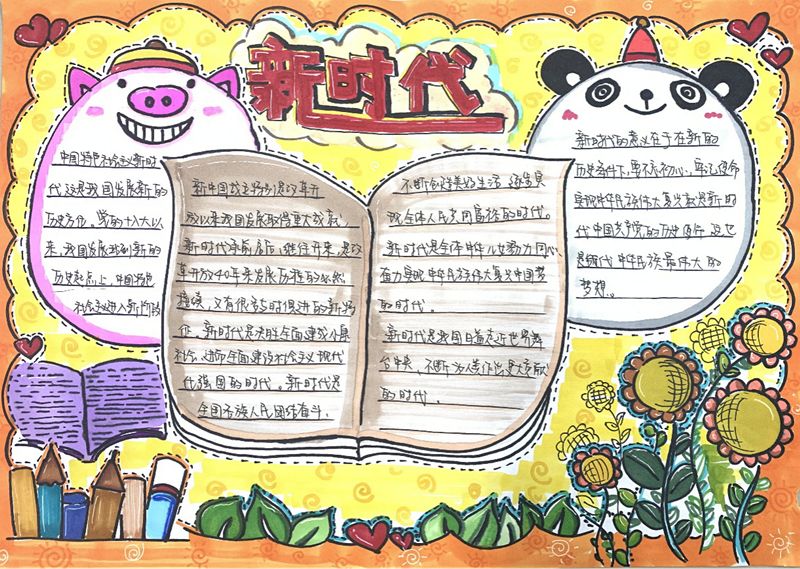 新时代
中国特色社会主义新时
代这是我国发展新的
历史方位。党的十八大以
来,我国发展站到新的
历史起点上,中国特色
社会主义进入新阶段
新中国成立特别是改革开
放以来我国发展取得重大成就,
新时代承前启后,继往开来,是改
革开放40年来发展历程的必然
接续,又有很多与时俱进的新特
征。新时代是决胜全面建成小康
社会,进而全面建设社会主义现代
代强国的时代。新时代是
全国各族人民团结奋斗.
不断创造美好生活 逐步实
现全体人民共同富裕的时代。
新时代是全体中华儿女勠力同心
奋力实现中华民族伟大复兴中国梦
的时代.
新时代是我国日益走近世界舞
台中央,不断为人类作出更大贡献
的时代.
新时代的意义在于在新的
历史条件下,要不忘初心,牢记使命
实现中华民族伟大复兴就是新时
代中国共产党的历史使命 这也
是近代中华民族最伟大的
梦想。